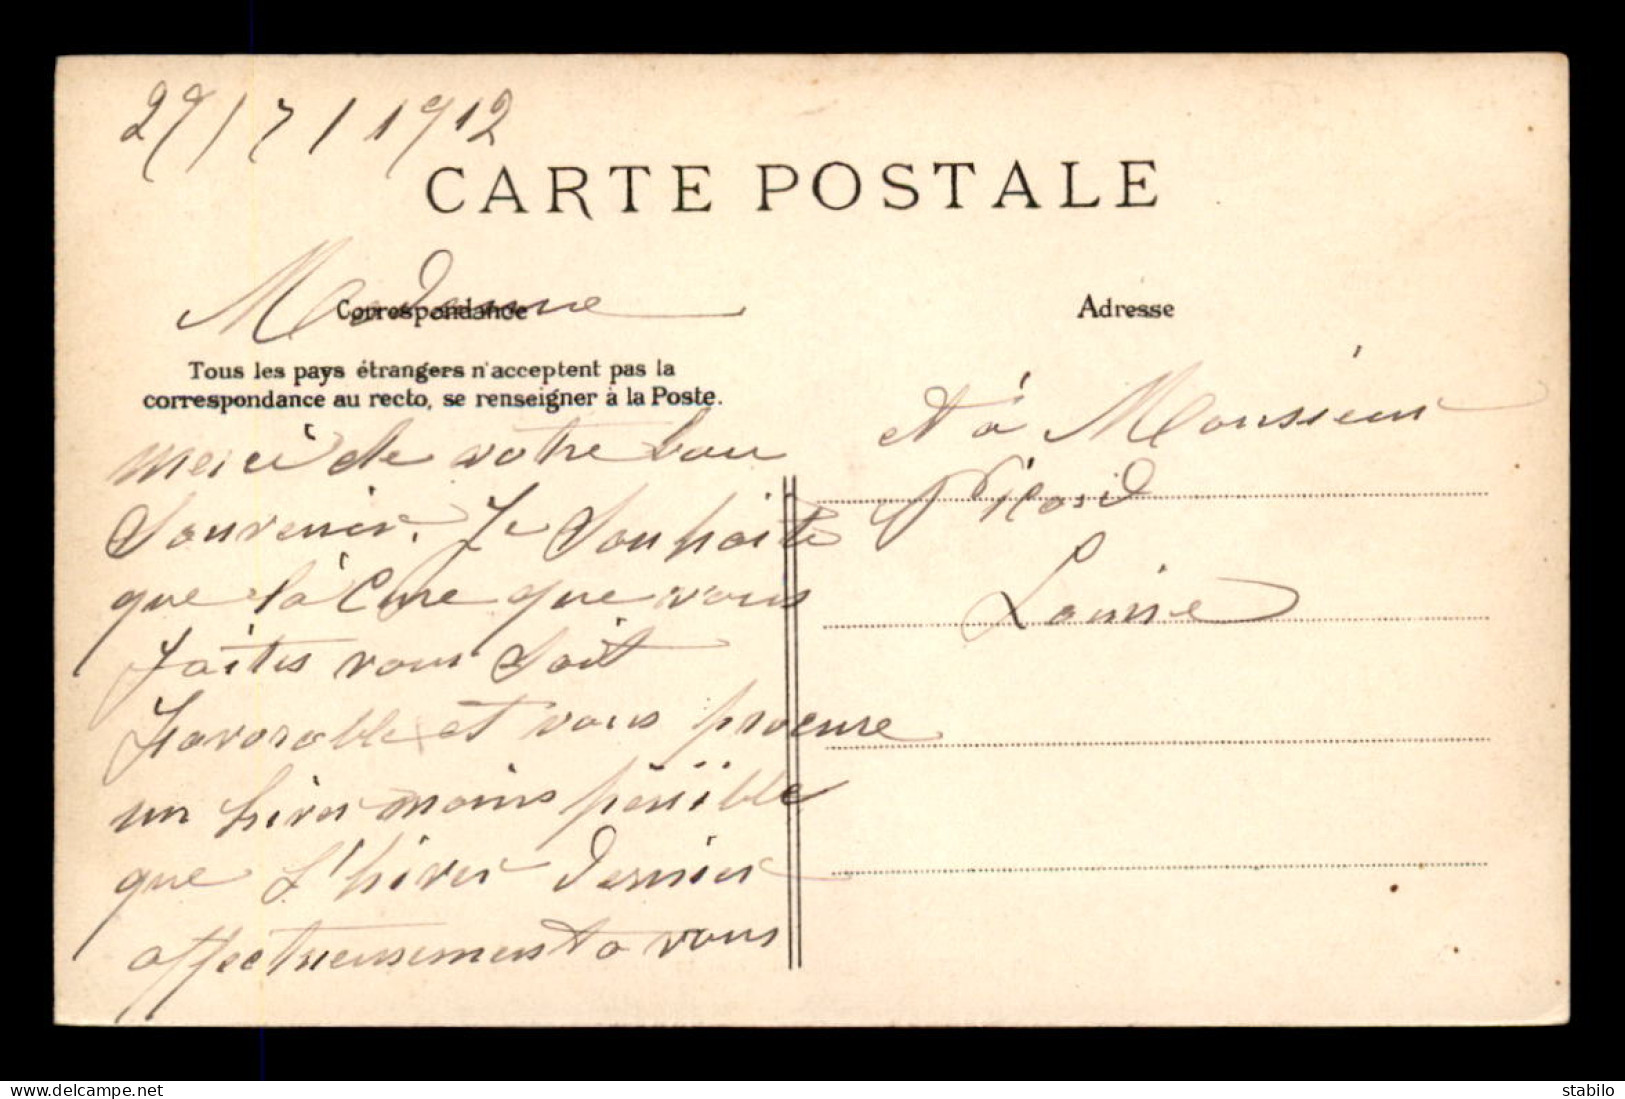 29/7/1912
CARTE POSTALE
Madame
Correspondance
Adresse
Tous les pays étrangers n'acceptent pas la
correspondance au recto, se renseigner à la Poste.
merci de votre bon
Souvenir. Je Souhaite
que la Cure que vous
faites vous Soit
favorable et vous procure
un hiver moins pénible
que l'hiver dernier
affectueusement a vous
et à Monsieur
Picard
Louise
stabilo
www.delcampe.net